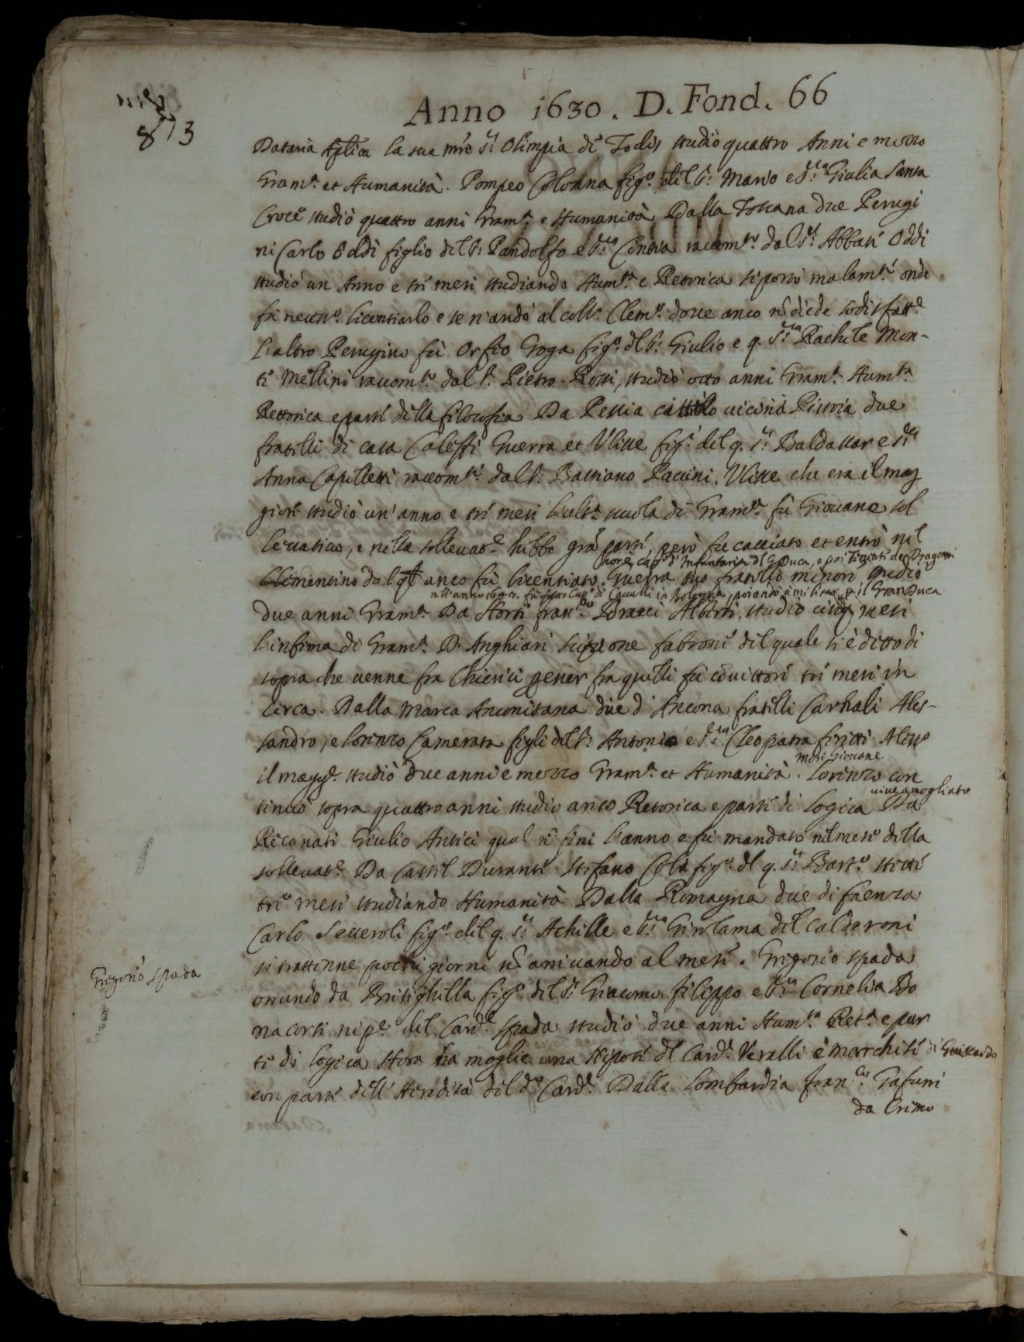 873
Anno 1630. D. Fond. 66
Dataria Aplica la sua m're S.ra Olimpia di Todis studiò quattro Anni e mezzo
Gram.ca et Humanità. Pompeo Colonna fig.o del S.r Mario e S.ra Giulia Santa
Croce studiò quattro anni Gram.ca e Humanità. Dalla Toscana due Perugi
ni Carlo Oddi figlio del S.r Pandolfo e S.ra racom.to dal S.r Abbate Oddi
studiò un Anno e tri mesi studiando Hum.tà e Retorica si portò malam.te onde
fù necess.o licentiarlo e se n'andò al coll.o Clem.o doue anco nò diede sodisfatt.e
L'altro Perugino fù Orfeo fig.o del S.r Giulio e q. S.ra Rachele Mon-
ti Mellini racom.to dal P. Pietro Rossi, studiò otto anni Gram.ca Hum.tà
Rettorica e parte della filosofia Da Pescia castello uicino à Pistoia due
fratelli di casa Caleffi Guerra et Ulisse fig.i del q. S.r Baldassar e S.ra
Anna Capelletti racom.ti dal P. Pacini, Ulisse che era il mag
giore studiò un'anno e tri mesi scuola di Gram.ca fù Giouane sol
leuatico, e nella solleuat.e hebbe grã parte, però fù cacciato et entrò nel
more cap.o d'Infanteria del G Duca, e poi Tenente de Dragoni
Clementino dal q.le anco fù licentiato. Guerra suo fratello minore studiò
nell'anno fù fatto Cap.o di Caualli in Bologna, andò à militar p il Gran Duca
due anni Gram.ca Da Horte fran.co Bracci Alberti, studiò cinq mesi
l'infima di Gram.ca D'Anghiari Scipione fabroni del quale si è detto di
sopra che uenne fra Chierici fra quelli fù cõuittore tri mesi in
circa. Dalla Marca Anconitana due d'Ancona fratelli Ales-
sandro, e Lorenzo Camerata figli del S.r Antonio e S.ra Cleopatra ferretti Aless.o
il magg.e studiò due anni e mezzo Gram.ca et Humanità. Lorenzo con
morì giouane
tinuò sopra quattro anni studiò anco Retorica e parte di Logica Da
uiue amogliato
Recanati Giulio Antici qual nò finì l'anno e fù mandato nel mese della
solleuat.e Da Castel Durante Stefano Cola fig.o del q. S.r Bart.o stette
tre mesi studiando Humanità Dalla Romagna due di faenza
Carlo Seueroli fig.o del q. S.r Achille e S.ra Girolama del Calderoni
si trattenne pochi giorni nò arriuando al mese. Gregorio Spada
Gregorio Spada
oriundo da Brisighella fig.o del S.r Giacomo filippo e S.ra Cornelia Bo
nacorsi nipe. del Card.e Spada studiò due anni Hum.tà Ret.ca e par
te di Logica Hora ha moglie una nepote del Card.e Veralli è marchese di
con parte dell'Heredità del d.o Card.e Dalla Lombardia fran.co Tafurri
da Crema